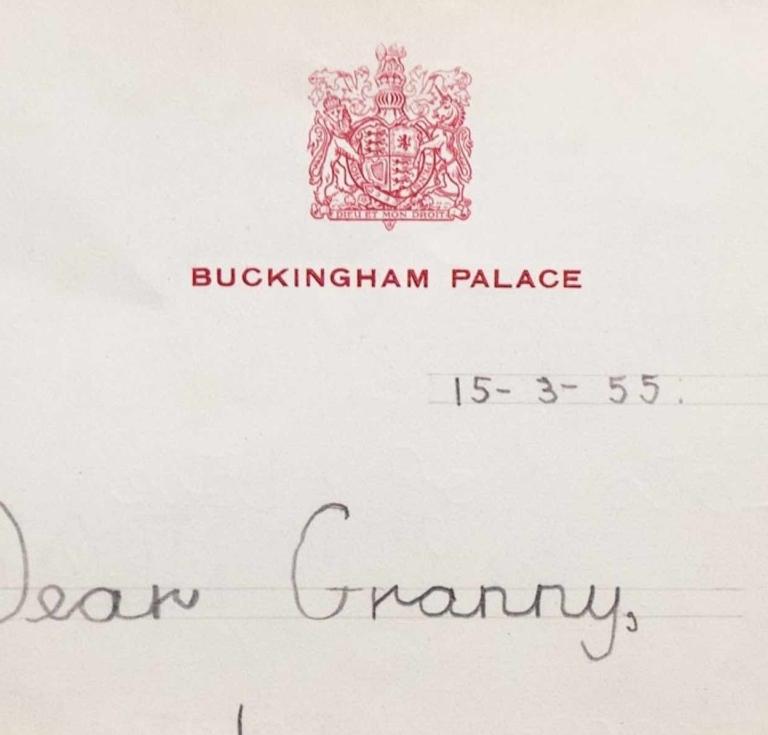 DIEU ET MON DROIT
BUCKINGHAM PALACE
15-3-55.
Dear Granny,